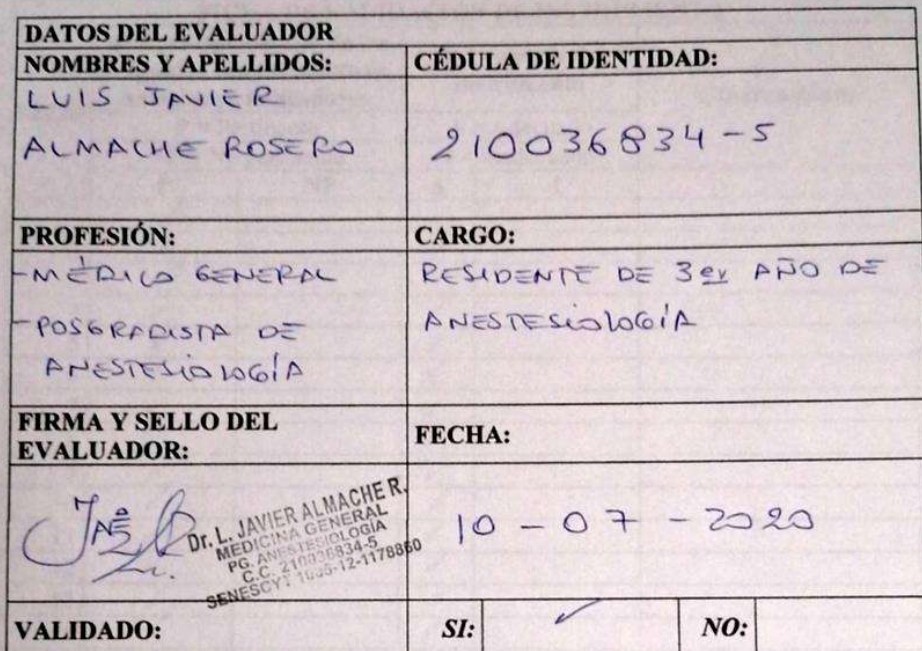 DATOS DEL EVALUADOR
NOMBRES Y APELLIDOS:
CÉDULA DE IDENTIDAD:
LUIS JAVIER
ALMACHE ROSERO
210036834-5
PROFESIÓN:
CARGO:
-MÉDICO GENERAL
-POSGRADISTA DE
ANESTESIOLOGÍA
RESIDENTE DE 3er AÑO DE
ANESTESIOLOGÍA
FIRMA Y SELLO DEL
EVALUADOR:
FECHA:
Dr. L. JAVIER ALMACHE R.
MEDICINA GENERAL
PG. ANESTESIOLOGÍA
C.C. 210036834-5
SENESCYT
10 - 07 - 2020
VALIDADO:
SI:
NO: